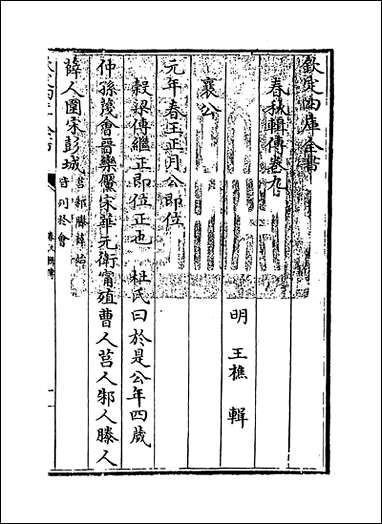 欽定四庫全書
春秋輯傳卷九
明 王樵 輯
襄公
元年春王正月公即位
穀梁傳繼正即位正也 杜氏曰於是公年四歲
仲孫蔑會晉欒黶宋華元衛甯殖曹人莒人邾人滕人
薛人圍宋彭城
春秋輯傳